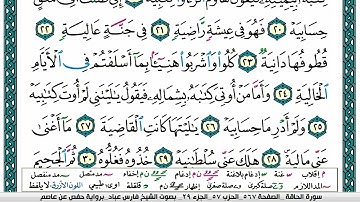 حِسَابِيَهْ ٢٠ فَهُوَ فِي عِيشَةٍ رَّاضِيَةٍ ٢١ فِي جَنَّةٍ عَالِيَةٍ ٢٢
قُطُوفُهَا دَانِيَةٌ ٢٣ كُلُوا۟ وَٱشْرَبُوا۟ هَنِيٓـًٔۢا بِمَآ أَسْلَفْتُمْ فِي ٱلْأَيَّامِ
ٱلْخَالِيَةِ ٢٤ وَأَمَّا مَنْ أُوتِيَ كِتَٰبَهُۥ بِشِمَالِهِۦ فَيَقُولُ يَٰلَيْتَنِي لَمْ أُوتَ كِتَٰبِيَهْ
٢٥ وَلَمْ أَدْرِ مَا حِسَابِيَهْ ٢٦ يَٰلَيْتَهَا كَانَتِ ٱلْقَاضِيَةَ ٢٧ مَآ أَغْنَىٰ
عَنِّي مَالِيَهْ ٢٨ هَلَكَ عَنِّي سُلْطَٰنِيَهْ ٢٩ خُذُوهُ فَغُلُّوهُ ٣٠ ثُمَّ ٱلْجَحِيمَ
سورة الحاقة . الصفحة ٥٦٧ . الجزء ٢٩ . بصوت الشيخ فارس عباد . برواية حفص عن عاصم